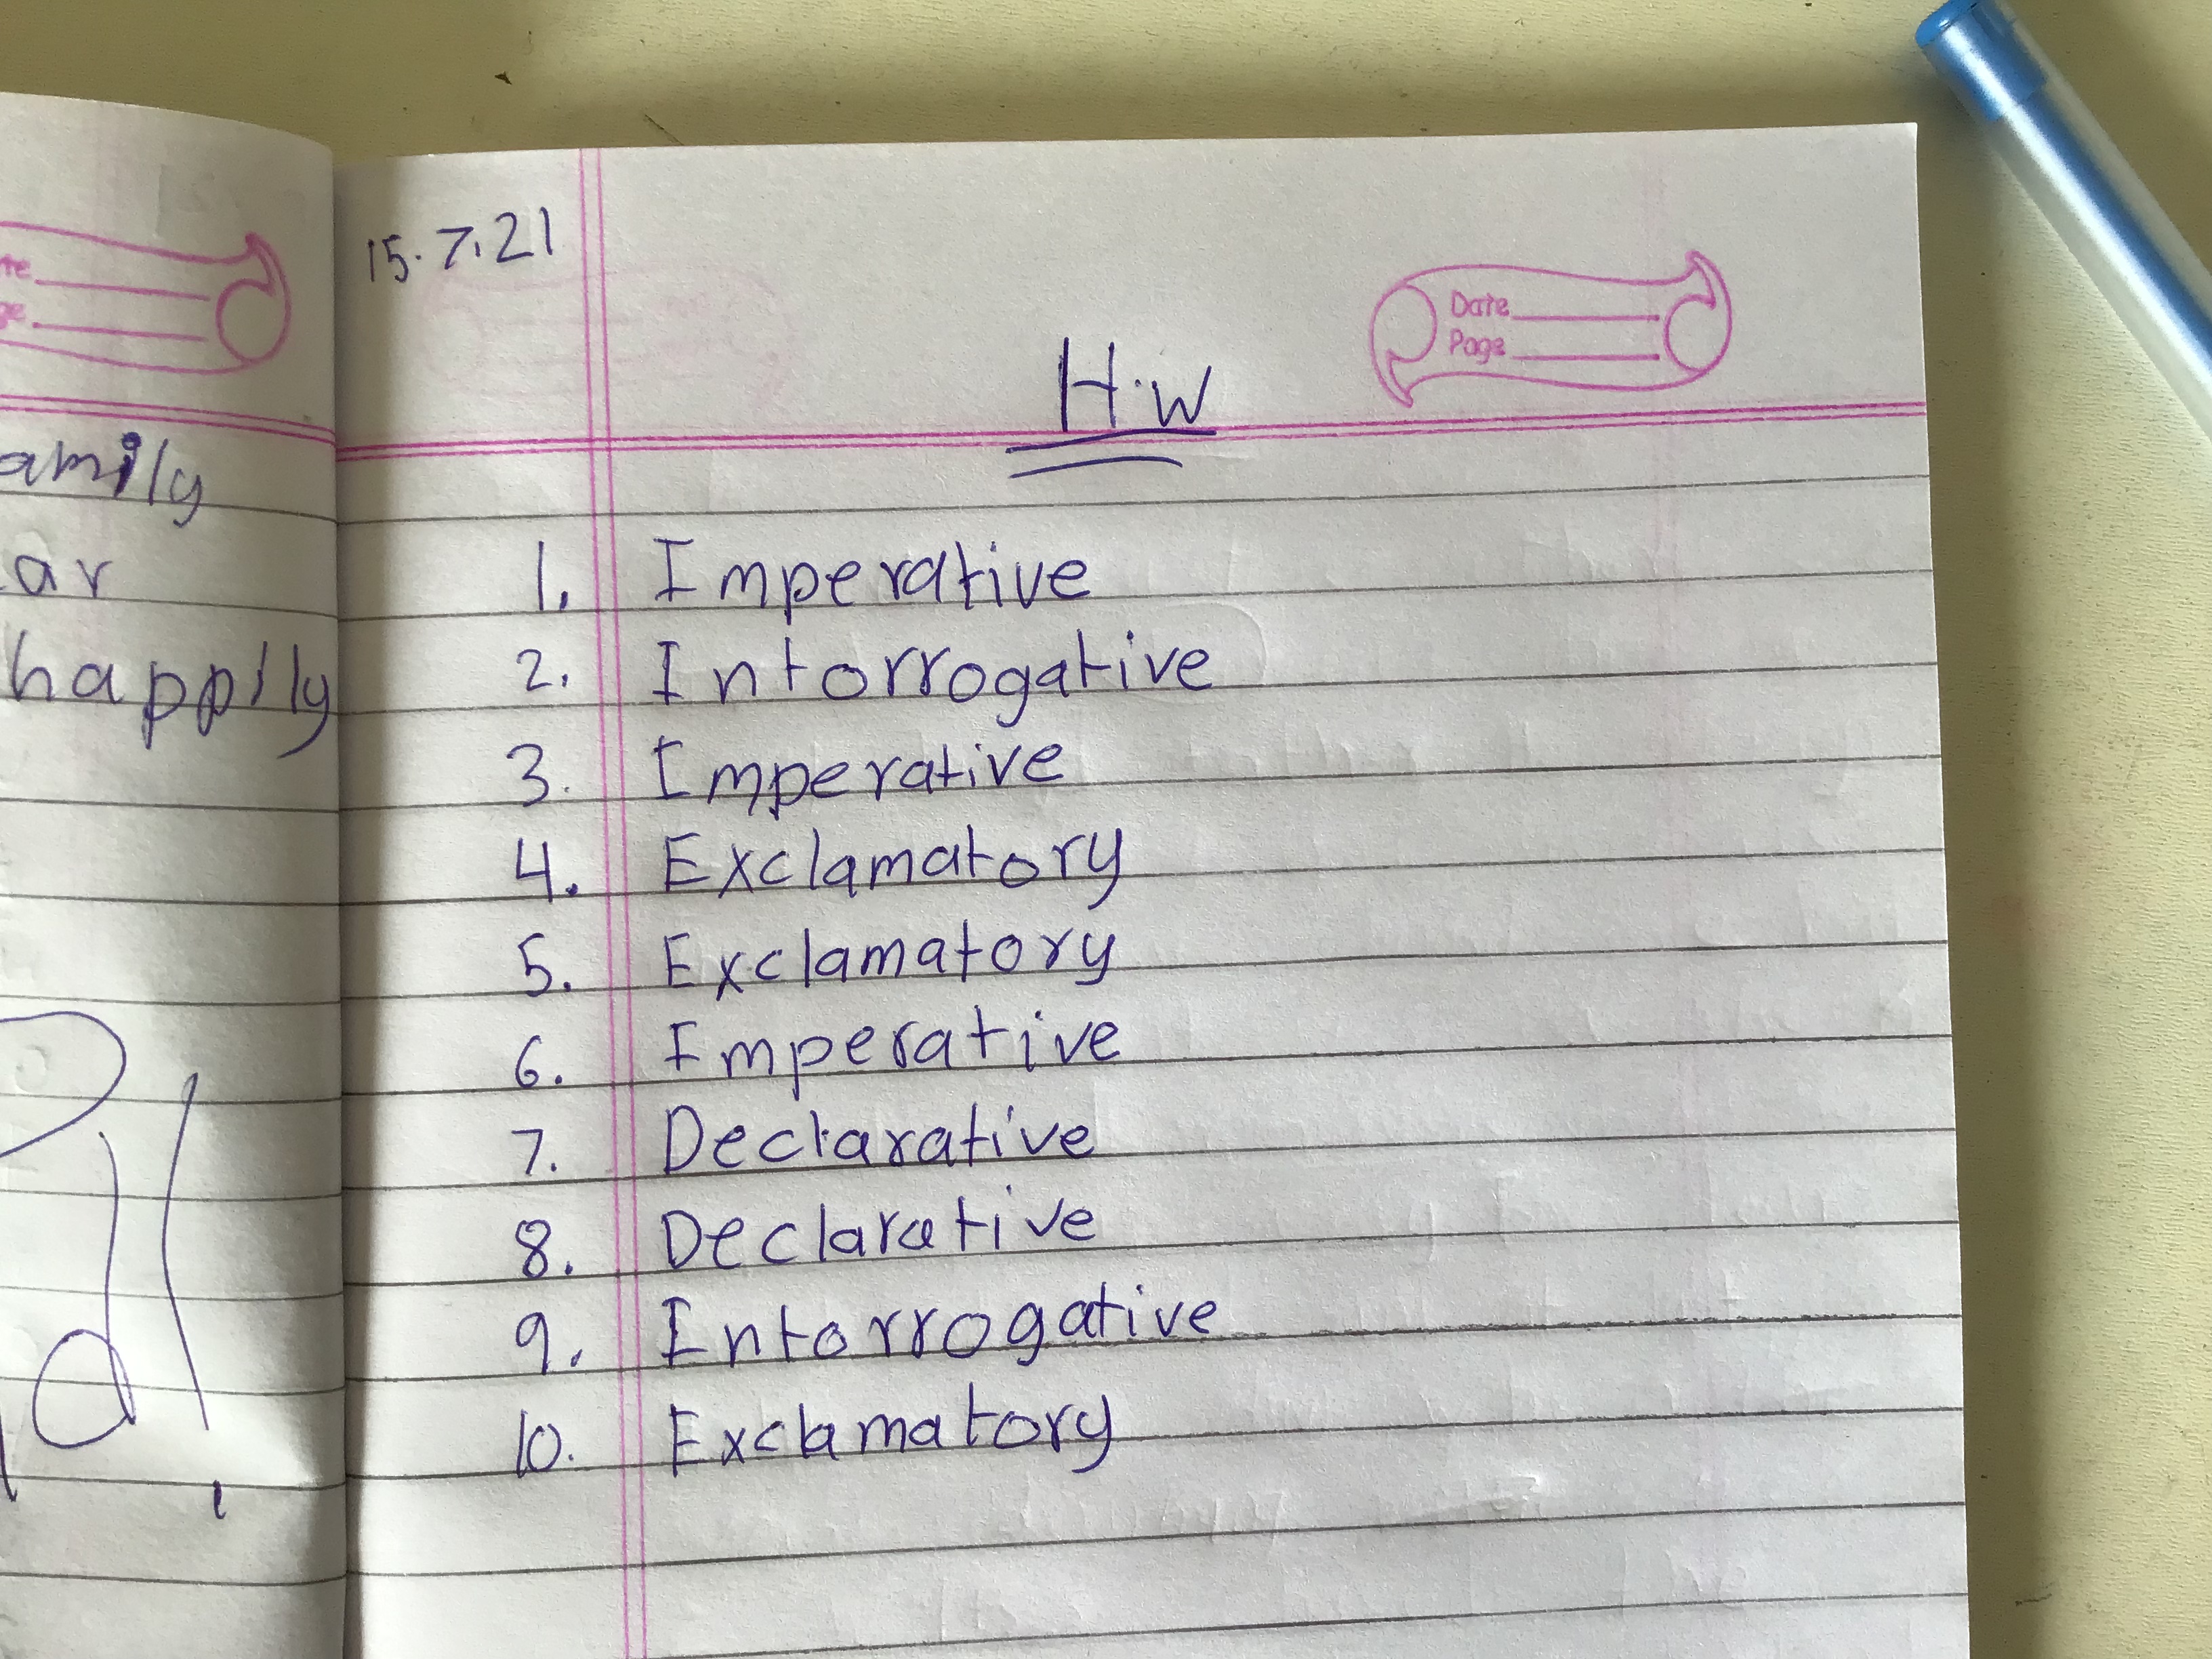 te
ge
amily
ar
happily
15.7.21
Date
Page
H.W
1. Imperative
2. Intorrogative
3. Imperative
4. Exclamatory
5. Exclamatory
6. Imperative
7. Declarative
8. Declarative
9. Intorrogative
10. Exclamatory